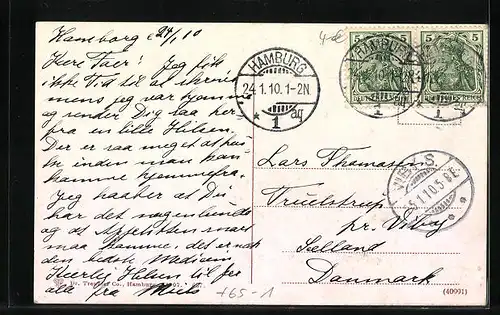 Hamborg 24/1 10
Kære Far! Jeg fik
ikke Tid til at skrive
mens jeg var hjemme
og sender Dig saa her-
fra en lille Hilsen.
Der er saa meget at
inden man kan
komme hjemmefra.
Jeg haaber at Du
har det
og at Appetitten snart
maa komme, det er nok
den bedste Medicin
Kærlig Hilsen til
alle fra Niels
HAMBURG
24.1.10.1-2N
* 1
HAMBURG
1
5 5
5 5
Lars Thomasen
Truelstrup
pr. Viby
Sælland
Danmark
VIBY S.
Dr. Trenkler Co., Hamburg
+65-1
(40091)